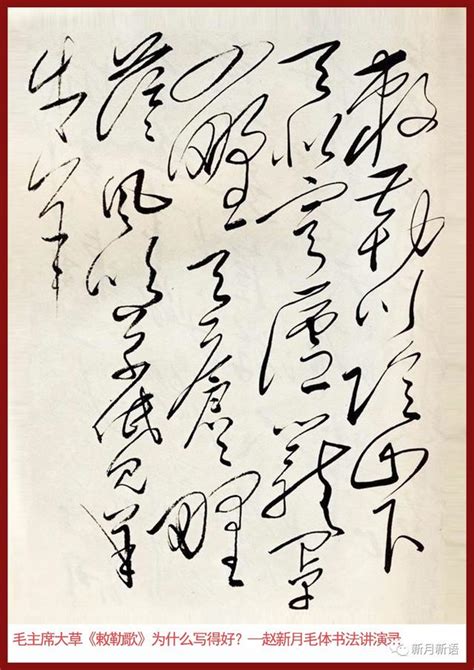 敕勒川陰山下
天似穹廬籠罩
四野天蒼蒼野
茫茫風吹草低見羊
牛羊
毛主席大草《敕勒歌》为什么写得好？—赵新月毛体书法讲演录
新月新语